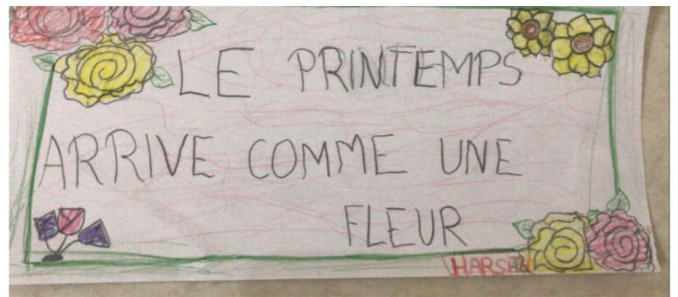 LE PRINTEMPS
ARRIVE COMME UNE
FLEUR